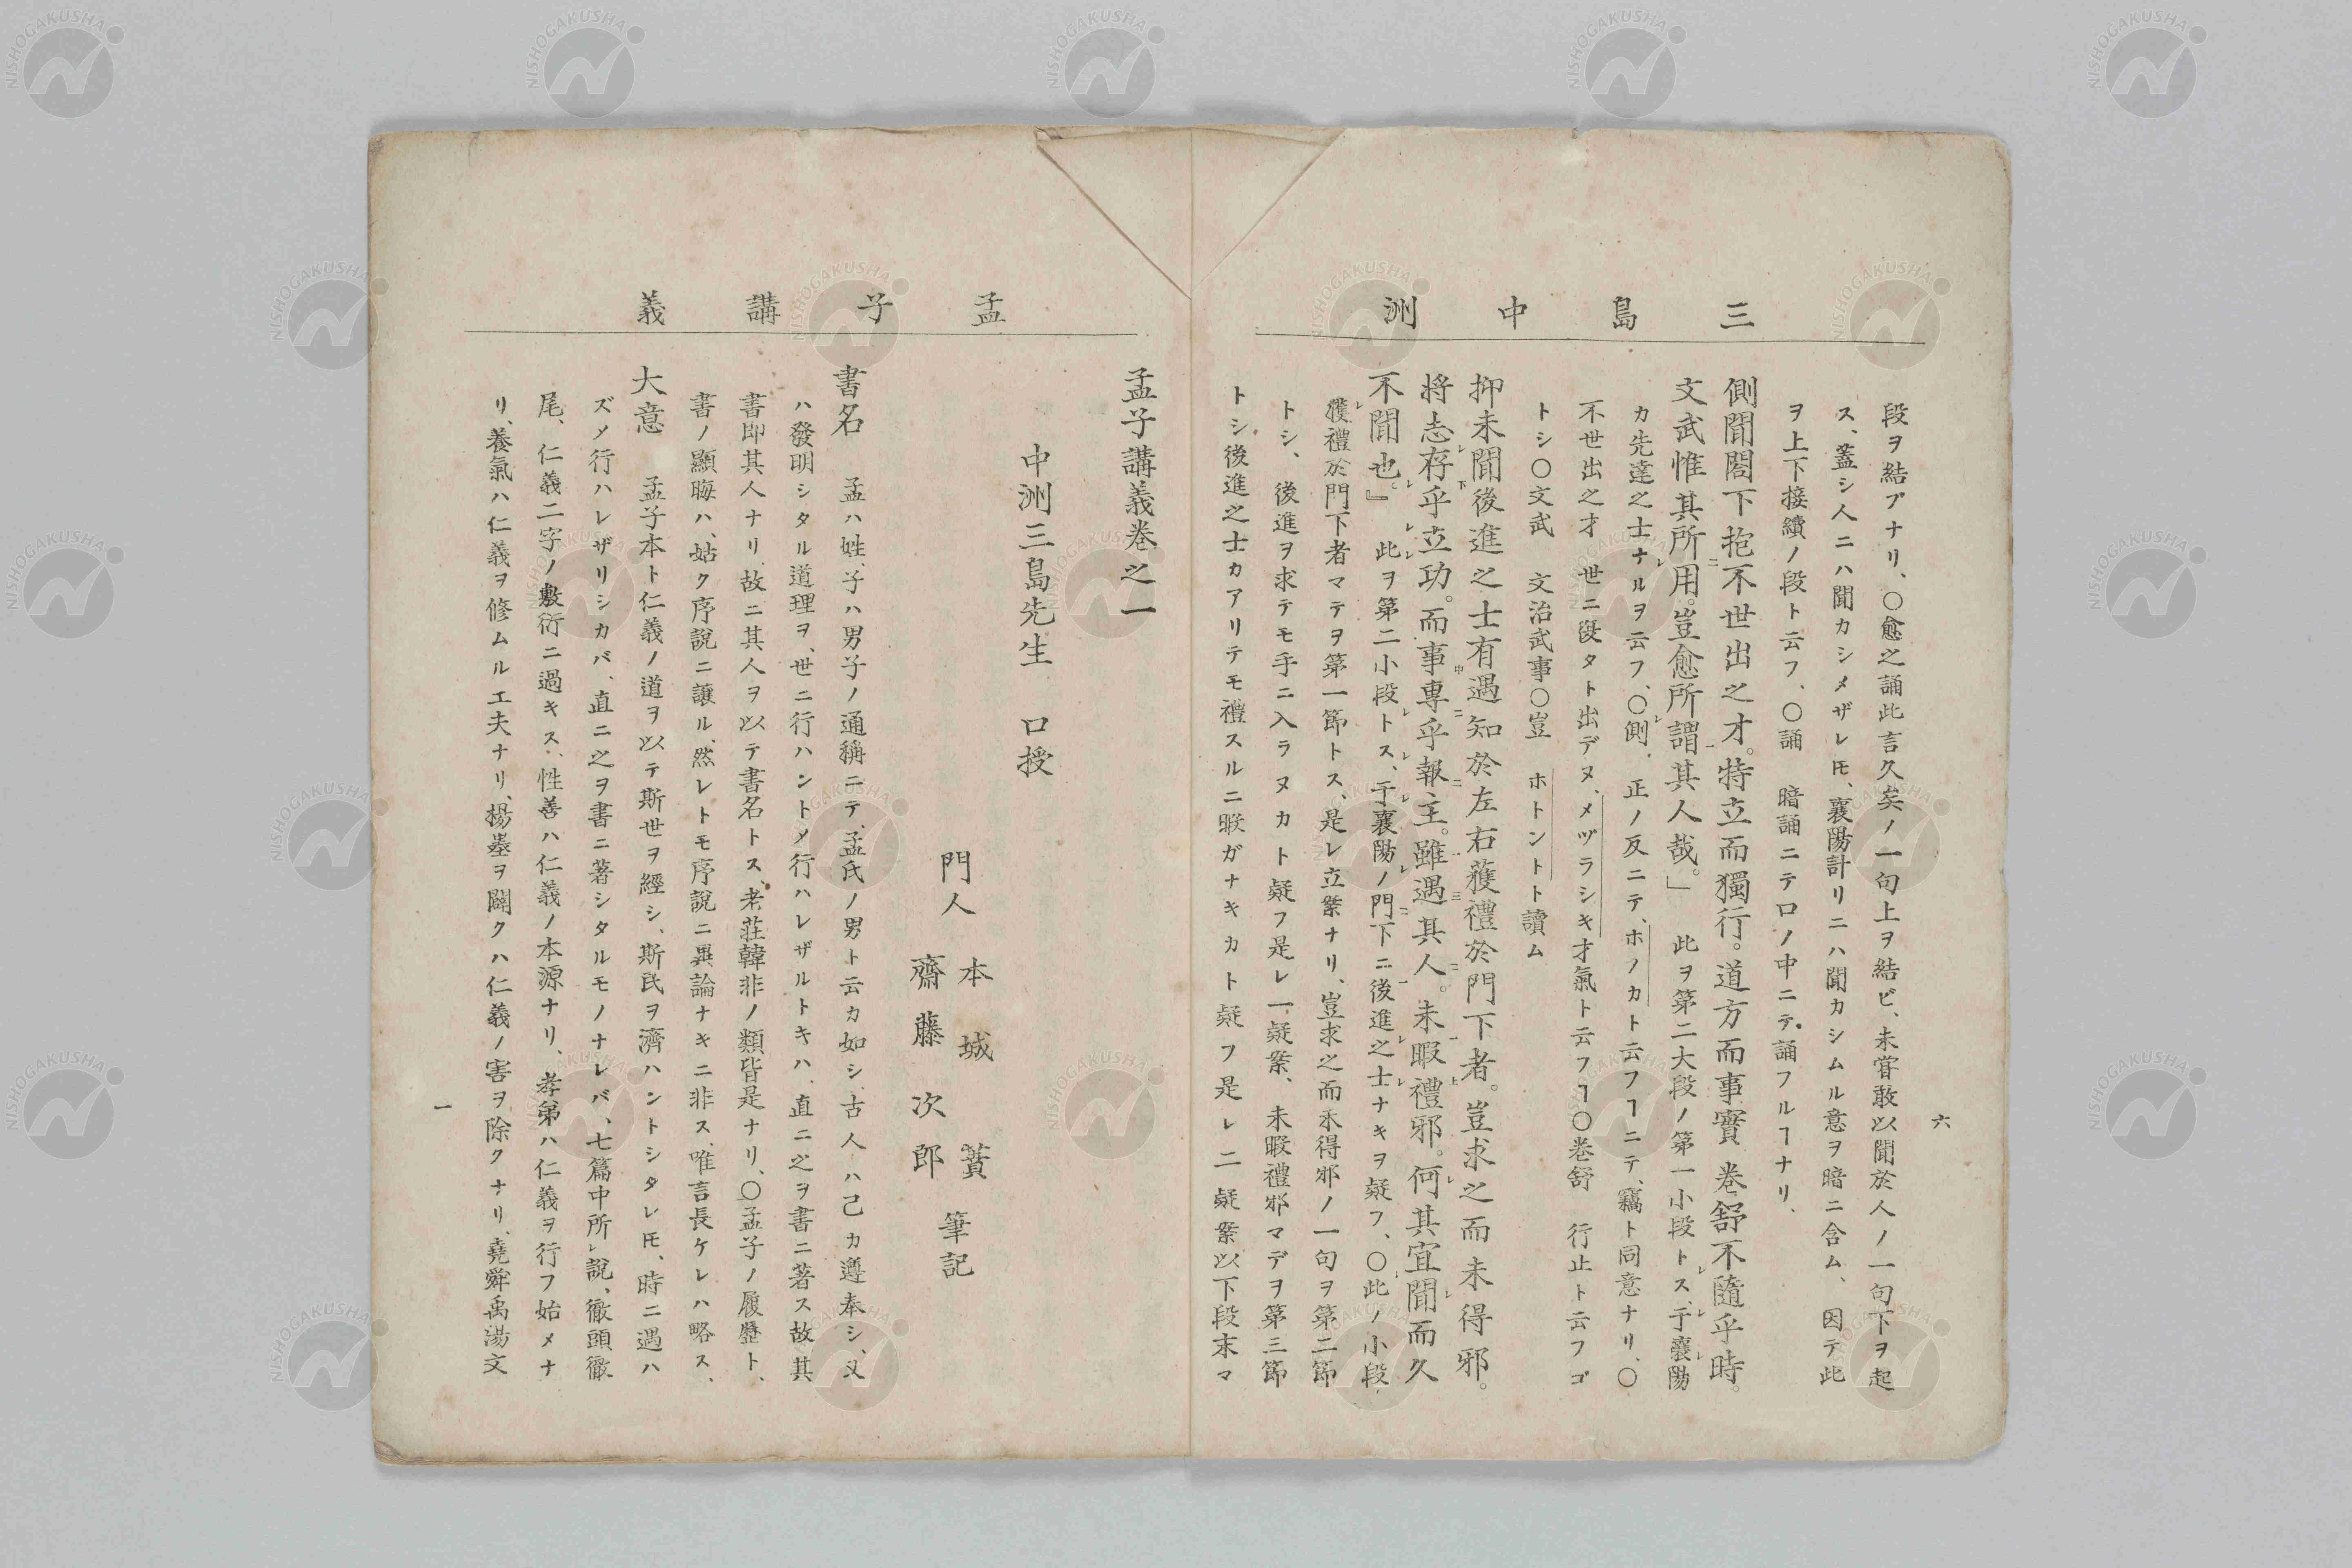 三島中洲
六
段ヲ結ブナリ、〇愈之誦此言久矣ノ一句上ヲ結ビ、未甞敢以聞於人ノ一句下ヲ起
ス、蓋シ人ニハ聞カシメザレ𪜈、襄陽計リニハ聞カシムル意ヲ暗ニ含ム、因テ此
ヲ上下接續ノ段ト云フ、〇誦 暗誦ニテ口ノ中ニテ誦フルヿナリ、
側聞閤下抱不世出之才。特立而獨行。道方而事實 卷舒不隨乎時。
文武惟其所用。豈愈所謂其人哉。」 此ヲ第二大段ノ第一小段トス、于襄陽
カ先達之士ナルヲ云フ、〇側、正ノ反ニテ、ホノカト云フヿニテ、竊ト同意ナリ、〇
不世出之才 世ニ段タト出デヌ、メヅラシキ才氣ト云フヿ〇卷舒 行止ト云フゴ
トシ〇文武 文治武事〇豈 ホトントト讀ム
抑未聞後進之士有遇知於左右獲禮於門下者。豈求之而未得邪。
將志存乎立功。而事專乎報主。雖遇其人。未暇禮邪。何其宜聞而久
不聞也。』 此ヲ第二小段トス、于襄陽ノ門下ニ後進之士ナキヲ疑フ、〇此ノ小段、
獲禮於門下者マテヲ第一節トス、是レ立案ナリ、豈求之而未得邪ノ一句ヲ第二節
トシ、後進ヲ求テモ手ニ入ラヌカト疑フ是レ一疑案、未暇禮邪マデヲ第三節
トシ後進之士カアリテモ禮スルニ暇ガナキカト疑フ是レ二疑案以下段末マ
孟子講義
孟子講義卷之一
中洲三島先生 口授
門人 本城 蕡
齋藤次郎 筆記
書名 孟ハ姓、子ハ男子ノ通稱ニテ、孟氏ノ男ト云カ如シ、古人ハ己カ遵奉シ、又
ハ發明シタル道理ヲ、世ニ行ハントメ行ハレザルトキハ、直ニ之ヲ書ニ著ス故其
書即其人ナリ、故ニ其人ヲ以テ書名トス、老莊韓非ノ類皆是ナリ、〇孟子ノ履歷ト、
書ノ顯晦ハ、姑ク序說ニ讓ル、然レトモ序說ニ異論ナキニ非ス、唯言長ケレハ略ス、
大意 孟子本ト仁義ノ道ヲ以テ斯世ヲ經シ、斯民ヲ濟ハントシタレ𪜈、時ニ遇ハ
ズメ行ハレザリシカバ、直ニ之ヲ書ニ著シタルモノナレバ、七篇中所レ說、徹頭徹
尾、仁義二字ノ敷衍ニ過キス、性善ハ仁義ノ本源ナリ、孝弟ハ仁義ヲ行フ始メナ
リ、養氣ハ仁義ヲ修ムル工夫ナリ、楊墨ヲ闢クハ仁義ノ害ヲ除クナリ、堯舜禹湯文
一
NISHOGAKUSHA